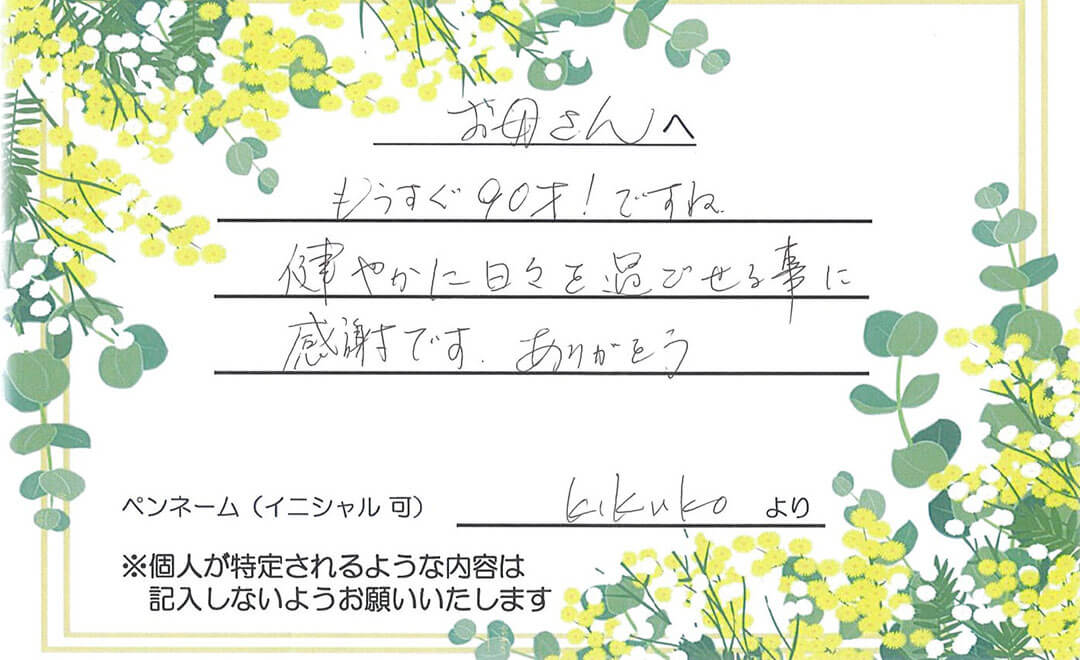 お母さんへ
もうすぐ90才!ですね
健やかに日々を過ごせる事に
感謝です. ありがとう
ペンネーム（イニシャル 可） kikuko より
※個人が特定されるような内容は
記入しないようお願いいたします